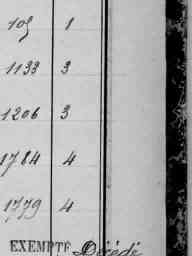 109 1
1133 3
1206 3
1784 4
1779 4
EXEMPTÉ Décédé